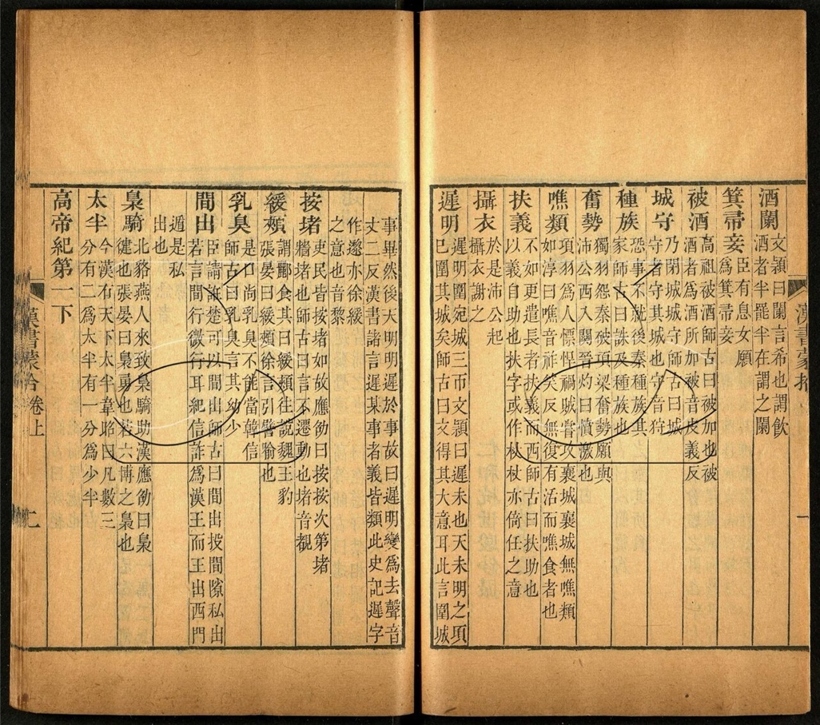 酒闌 文穎曰闌言希也謂飲
酒者半罷半在謂之闌
箕帚妾 臣有息女願
爲箕帚妾
被酒 高祖被酒師古曰被加也被
酒者爲酒所加被音皮義反
城守 乃閉城城守師古曰城
守者守其城也守音狩
種族 恐事不就後秦種族其
家師古曰誅及種族也
奮勢 獨羽怨秦破項梁奮勢願與
沛公西入關晉灼曰憤激也
噍類 項羽爲人慓悍禍賊嘗攻襄城襄城無噍類
如淳曰噍音祚笑反無復有活而噍食者也
扶義 不如更遣長者扶義而西師古曰扶助也
以義自助也扶字或作杖杖亦倚任之意
攝衣 於是沛公起
攝衣謝之
遲明 遲明圍宛城三帀文穎曰遲未也天未明之頃
已圍其城矣師古曰文得其大意耳此言圍城
事畢然後天明明遲於事故曰遲明變爲去聲音
丈二反漢書諸言遲某事者義皆類此史記遲字
作邌亦徐緩
之意也音黎
按堵 吏民皆按堵如故應劭曰按按次第堵
牆堵也師古曰言不遷動也堵音覩
緩頰 謂酈食其曰緩頰往說魏王豹
張晏曰緩頰徐言引譬喻也
乳臭 是口尚乳臭不能當韓信
師古曰乳臭言其幼少
間出 臣請誑楚可以間出師古曰間出投間隙私出
若言間行微行耳紀信詐爲漢王而王出西門
遁是私
出也
梟騎 北貉燕人來致梟騎助漢應劭曰梟
健也張晏曰梟勇也若六博之梟也
太半 今漢有天下太半韋昭曰凡數三
分有二爲太半有一分爲少半
高帝紀第一下
漢書蒙拾卷上 二